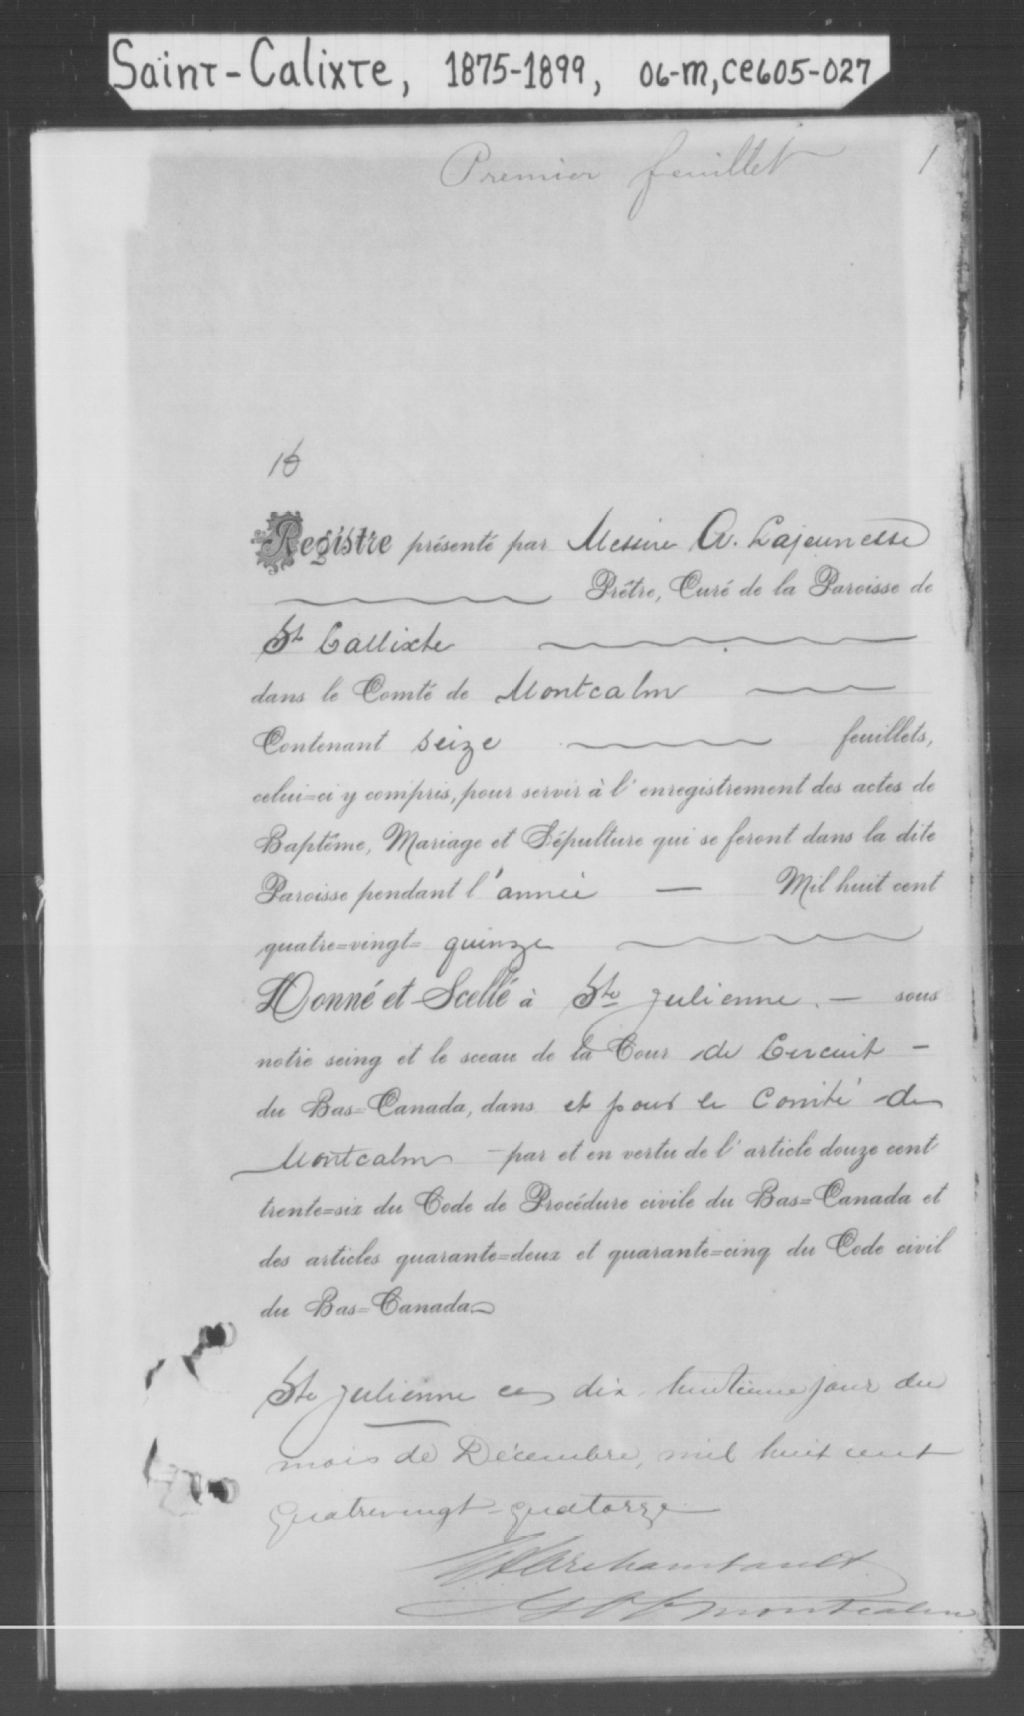 Saint-Calixte, 1875-1899, 06-M, CE605-027
Premier feuillet 1
16
Registre présenté par Messire A. Lajeunesse
Prêtre, Curé de la Paroisse de
St Callixte
dans le Comté de Montcalm
Contenant seize feuillets,
celui=ci y compris, pour servir à l'enregistrement des actes de
Baptême, Mariage et Sépulture qui se feront dans la dite
Paroisse pendant l'année — Mil huit cent
quatre=vingt= quinze
Donné et Scellé à Ste Julienne. — sous
notre seing et le sceau de la Cour de Circuit —
du Bas=Canada, dans et pour le Comté de
Montcalm — par et en vertu de l'article douze cent
trente=six du Code de Procédure civile du Bas=Canada et
des articles quarante=deux et quarante=cinq du Code civil
du Bas=Canada
Ste Julienne ce dix huitieme jour du
mois de Décembre, mil huit cent
quatrevingt-quatorze
Archambault
Montcalm